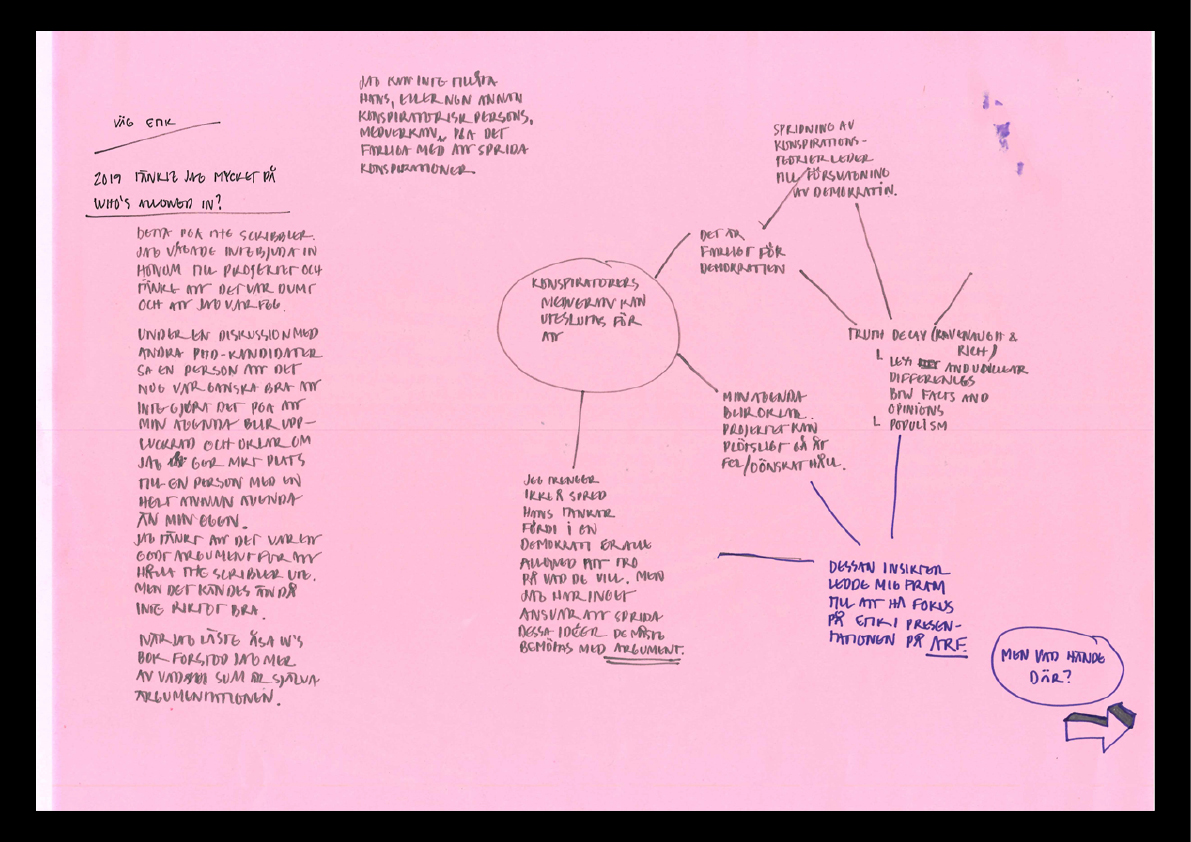 VÄG ETIK
2019 TÄNKTE JAG MYCKET PÅ
WHO'S ALLOWED IN?
DETTA PGA THE SCRIBBLER.
JAG VÅGADE INTE BJUDA IN
HONOM TILL PROJEKTET OCH
TÄNKTE ATT DET VAR DUMT
OCH ATT JAG VAR FEG.
UNDER EN DISKUSSION MED
ANDRA PHD-KANDIDATER
SA EN PERSON ATT DET
NOG VAR GANSKA BRA ATT
INTE GJORT DET PGA ATT
MIN AGENDA BLIR UPP-
LUCKRAD OCH OKLAR OM
JAG GER MKT PLATS
TILL EN PERSON MED EN
HELT ANNAN AGENDA
ÄN MIN EGEN.
JAG TÄNKT ATT DET VAR ETT
GODT ARGUMENT FÖR ATT
HÅLLA THE SCRIBLER UTE.
MEN DET KÄNDES ÄNDÅ
INTE RIKTGT BRA.
NÄR JAG LÄSTE ÅSA W'S
BOK FÖRSTOD JAG MER
AV VAD SOM ÄR SJÄLVA
ARGUMENTATIONEN.
JAG KAN INTE TILLÅTA
HANS, ELLER NGN ANNAN
KONSPIRATORISK PERSONS,
MEDVERKAN, PGA DET
FARLIGA MED ATT SPRIDA
KONSPIRATIONER.
KONSPIRATORERS
MEDVERKAN KAN
UTESLUTAS FÖR
ATT
SPRIDNING AV
KONSPIRATIONS-
TEORIER LEDER
TILL FÖRSVAGNING
AV DEMOKRATIN.
DET ÄR
FARLIGT FÖR
DEMOKRATIEN
TRUTH DECAY (KAVENAUGH &
RICH)
LESS AND UNCLEAR
DIFFERENCES
BTW FACTS AND
OPINIONS
POPULISM
MIN AGENDA
BLIR OKLAR.
PROJEKTET KAN
PLÖTSLIGT GÅ ÅT
FEL/OÖNSKAT HÅLL.
JEG TRENGER
IKKE Å SPRED
HANS TANKAR
FORDI I EN
DEMOKRATI ER ALLE
ALLOWED ATT TRO
PÅ VAD DE VILL. MEN
JAG HAR INGET
ANSVAR ATT SPRIDA
DESSA IDÉER. DE MÅSTE
BEMÖTAS MED ARGUMENT.
DESSAN INSIKTER
LEDDE MIG FRAM
TILL ATT HA FOKUS
PÅ ETIK I PRESEN-
TATIONEN PÅ ARF.
MEN VAD HÄNDE
DÄR?